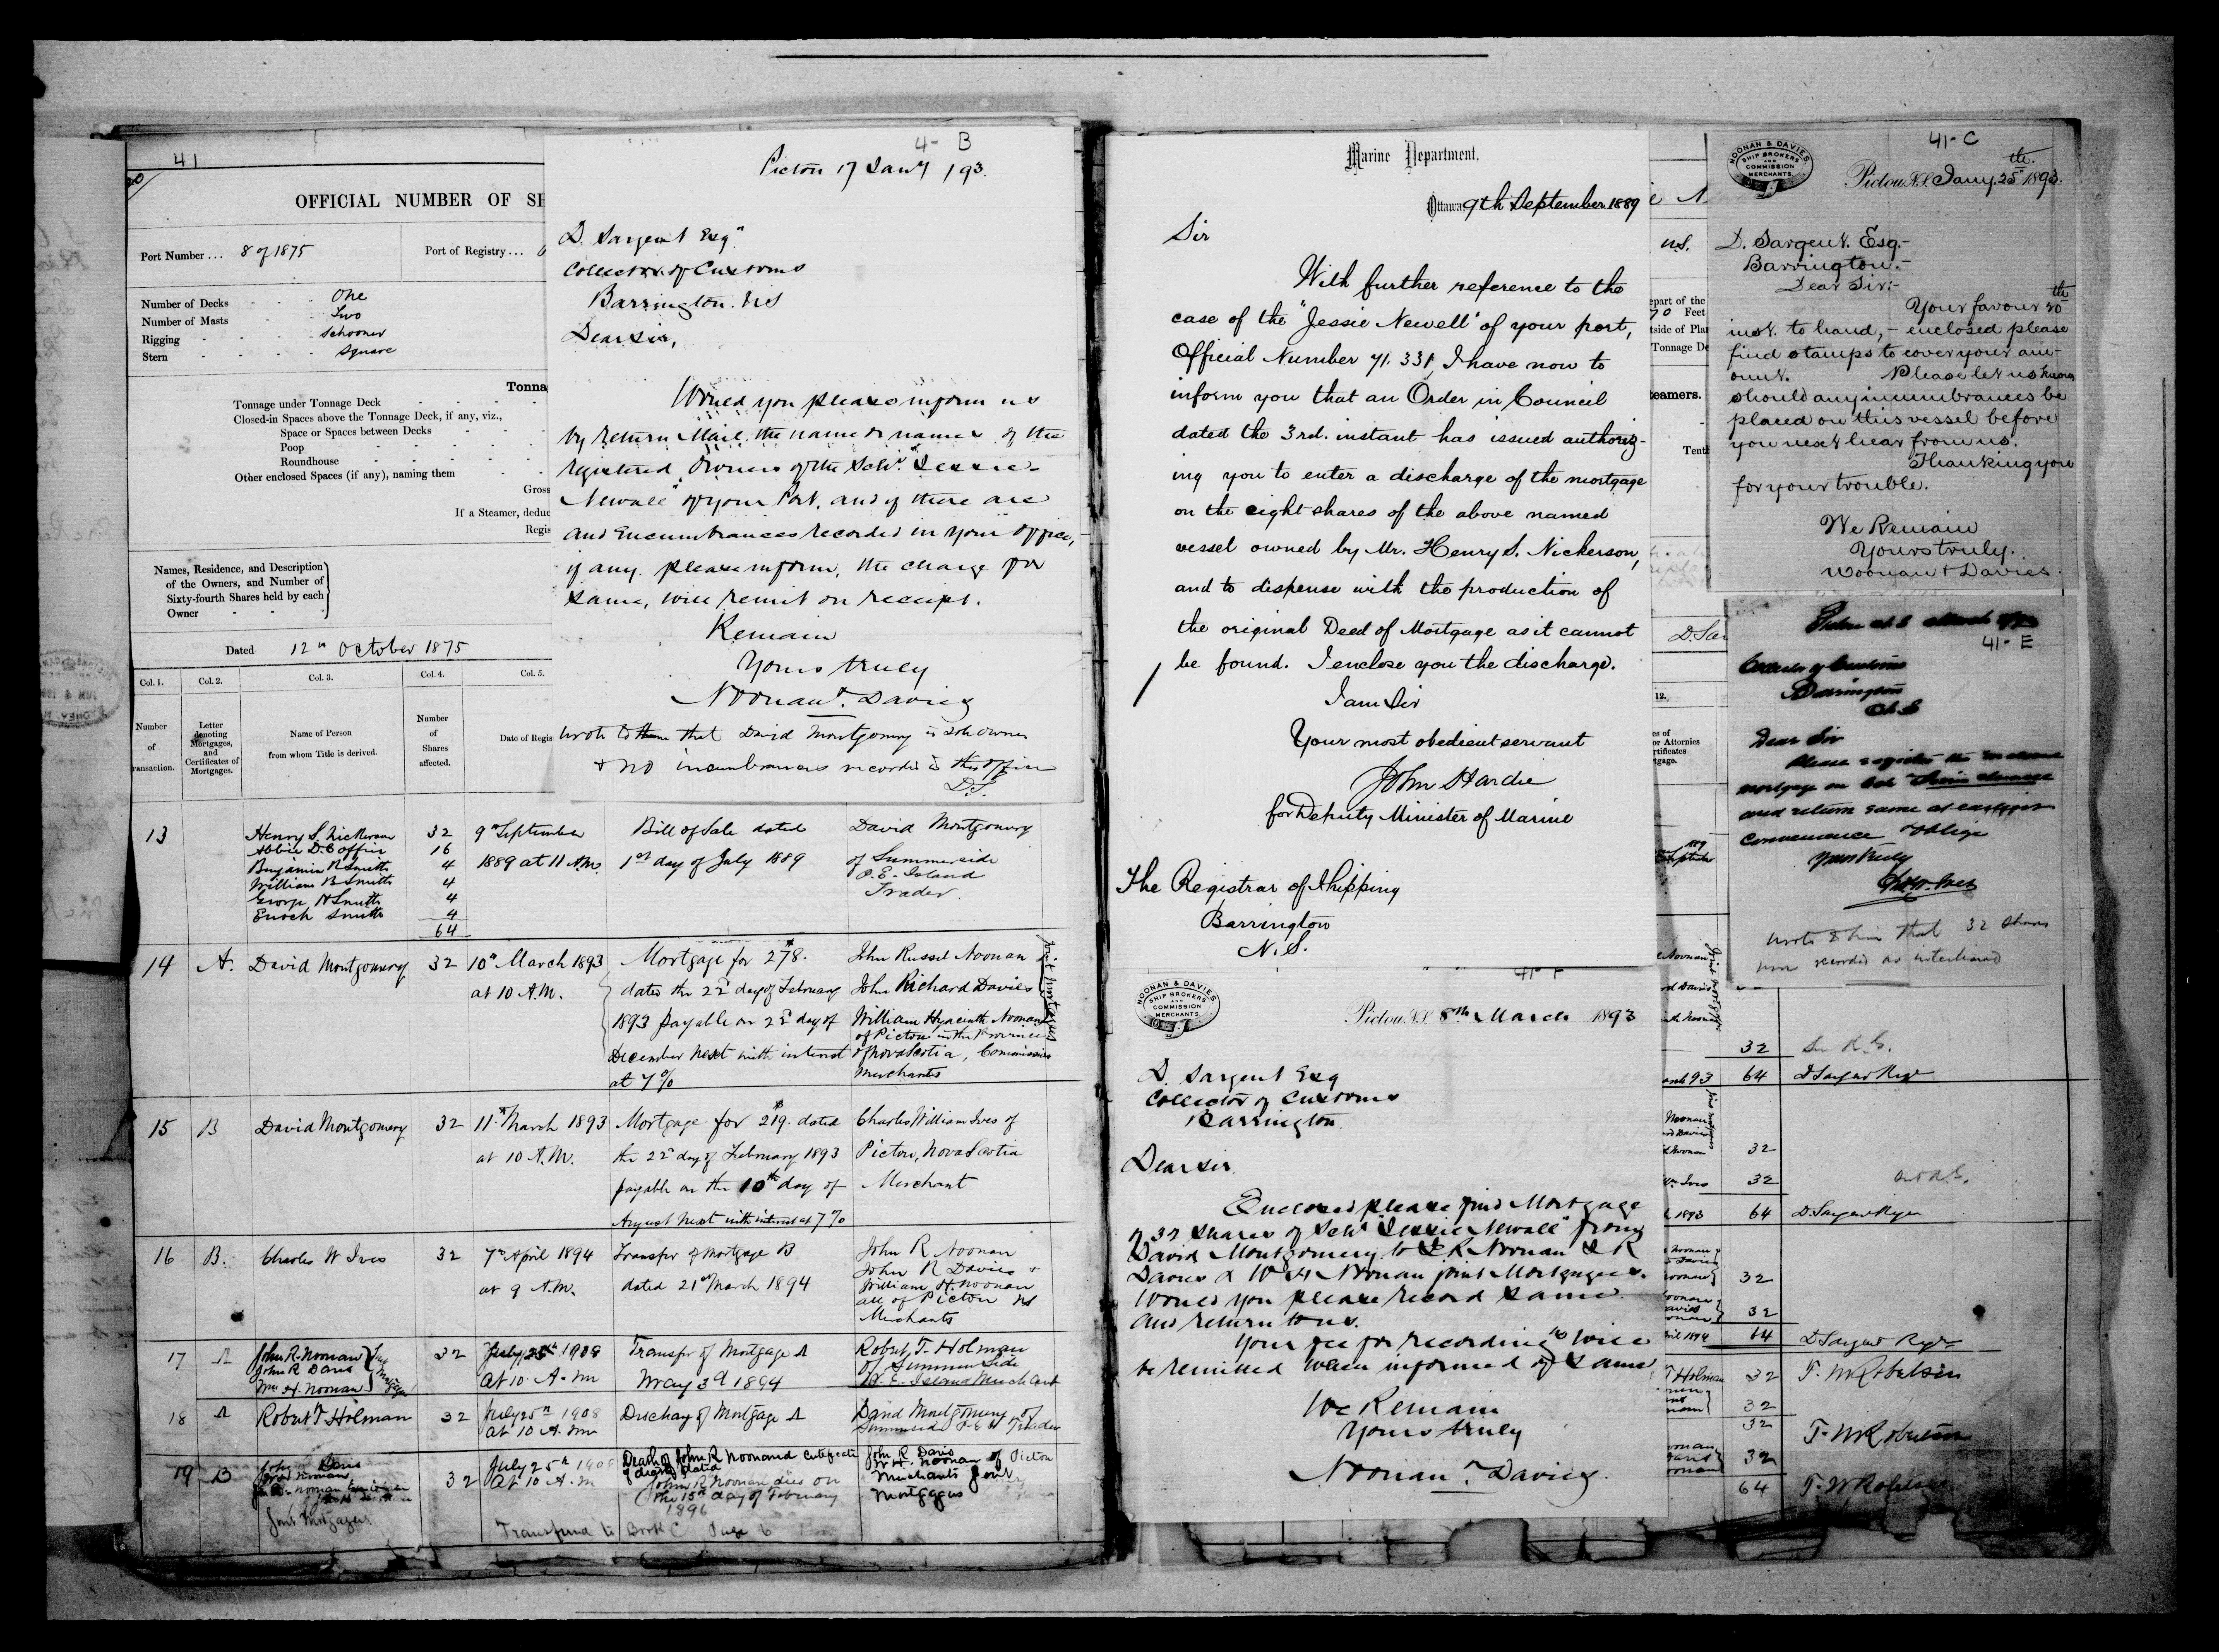 41
OFFICIAL NUMBER OF
Port Number ... 8 of 1875
Port of Registry ...
Number of Decks One
Number of Masts Two
Rigging Schooner
Stern Square
Tonnage under Tonnage Deck
Closed-in Spaces above the Tonnage Deck, if any, viz.,
Space or Spaces between Decks
Poop
Roundhouse
Other enclosed Spaces (if any), naming them
Gross
If a Steamer, deduc
Names, Residence, and Description
of the Owners, and Number of
Sixty-fourth Shares held by each
Owner
Dated 12th October 1875
Col. 1. Col. 2. Col. 3. Col. 4. Col. 5.
Number of Transaction.
Letter denoting Mortgages, and Certificates of Mortgages.
Name of Person from whom Title is derived.
Number of Shares affected.
Date of Regis
13
Henry S. Nickerson 32
Abbie D. Coffin 16
Benjamin R Smith 4
William B Smith 4
George H Smith 4
Enoch Smith 4
64
9th September
1889 at 11 A.M.
Bill of Sale dated
1st day of July 1889
David Montgomery
of Summerside
P.E. Island
Trader
14 A. David Montgomery 32
10th March 1893
at 10 A.M.
Mortgage for 278.
dated the 22d day of February
1893 payable on 22d day of
December next with interest
at 7%
John Russel Noonan
John Richard Davies
William Hyacinth Noonan
of Pictou in the Province
of Nova Scotia, Commission
Merchants
joint mortgagees
15 B David Montgomery 32
11th March 1893
at 10 A.M.
Mortgage for 219. dated
the 22d day of February 1893
payable on the 10th day of
August next with interest at 7%
Charles William Ives of
Pictou, Nova Scotia
Merchant
16 B. Charles W Ives 32
7th April 1894
at 9 A.M.
Transfer of Mortgage B
dated 21st March 1894
John R Noonan
John R Davies &
William H. Noonan
all of Pictou NS
Merchants
17 A
John R. Noonan
John R Davis
Wm H. Noonan
32
July 25th 1908
At 10 A.M
Transfer of Mortgage A
May 3d 1894
Robert T. Holman
of Summerside
P. E. Island Merchant
18 A Robert T Holman 32
July 25th 1908
at 10 A.M
Discharge of Mortgage A
David Montgomery of
Summerside P.E.I Trader
19 B
Joint Mortgagees
32
July 25th 1908
At 10 A.M
Death of John R Noonan
John R Noonan died on
the 15th day of February
1896
John R. Davis
W. H. Noonan of Pictou
Merchants Joint
Mortgagees
Transferred to Book C Page 6
4- B
Pictou 17 Jany /93.
D. Sargent Esqr
Collector of Customs
Barrington. N.S
Dear Sir,
Would you please inform us
by return Mail. the name or names of the
registered Owners of the Schr. "Jessie
Newall" of your Port. and if there are
and Encumbrances recorded in your office,
if any. please inform, the charge for
same, will remit on receipt.
Remain
Yours truly
Noonan & Davies
wrote to them that David Montgomery is sole owner
& no incumbrances recorded in this office
D.S.
Marine Department,
Ottawa, 9th September 1889
Sir
With further reference to the
case of the "Jessie Newell" of your port,
Official Number 71. 331, I have now to
inform you that an Order in Council
dated the 3rd. instant has issued authoriz-
ing you to enter a discharge of the mortgage
on the eight shares of the above named
vessel owned by Mr. Henry S. Nickerson,
and to dispense with the production of
the original Deed of Mortgage as it cannot
be found. I enclose you the discharge.
I am Sir
Your most obedient servant
John Hardie
for Deputy Minister of Marine
The Registrar of Shipping
Barrington
N.S.
41-F
NOONAN & DAVIES
SHIP BROKERS
AND
COMMISSION
MERCHANTS
Pictou, N.S. 8th March 1893
D. Sargent Esq
Collector of Customs
Barrington.
Dear Sir.
Enclosed please find Mortgage
of 32 shares of Schr "Jessie Newall" from
David Montgomery to J. R. Noonan J R
Davies & W H Noonan joint Mortgagees.
Would you please record same
and return to us.
Your fee for recording will
be remitted when informed of same
We Remain
Yours truly
Noonan & Davies.
41-C
NOONAN & DAVIES
SHIP BROKERS
AND
COMMISSION
MERCHANTS
Pictou N.S. Jany. 25th 1893.
D. Sargent. Esq.-
Barrington.-
Dear Sir:-
Your favour 20th
inst. to hand,- enclosed please
find stamps to cover your am-
ount. Please let us know
should any incumbrances be
placed on this vessel before
you next hear from us.
Thanking you
for your trouble.
We Remain
Yours truly.
Noonan & Davies.
41-E
Collector of Customs
Barrington
N.S
Dear Sir
Please register the enclosed
mortgage on Sch
and return same at earliest
convenience & oblige
Yours truly
Chas. W. Ives
wrote to him that 32 shares
32
64 D Sargent Regr
32
32
64 D Sargent Regr
32
32
64 D Sargent Regr
32 T. W Robertson
32
32 T. W Robertson
32
64 T. W Robertson